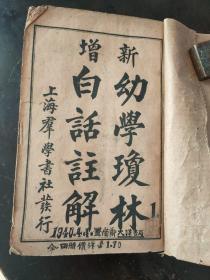 新
增
幼學瓊林
白話註解
上海羣學書社發行
1
仝四册價洋$1.70